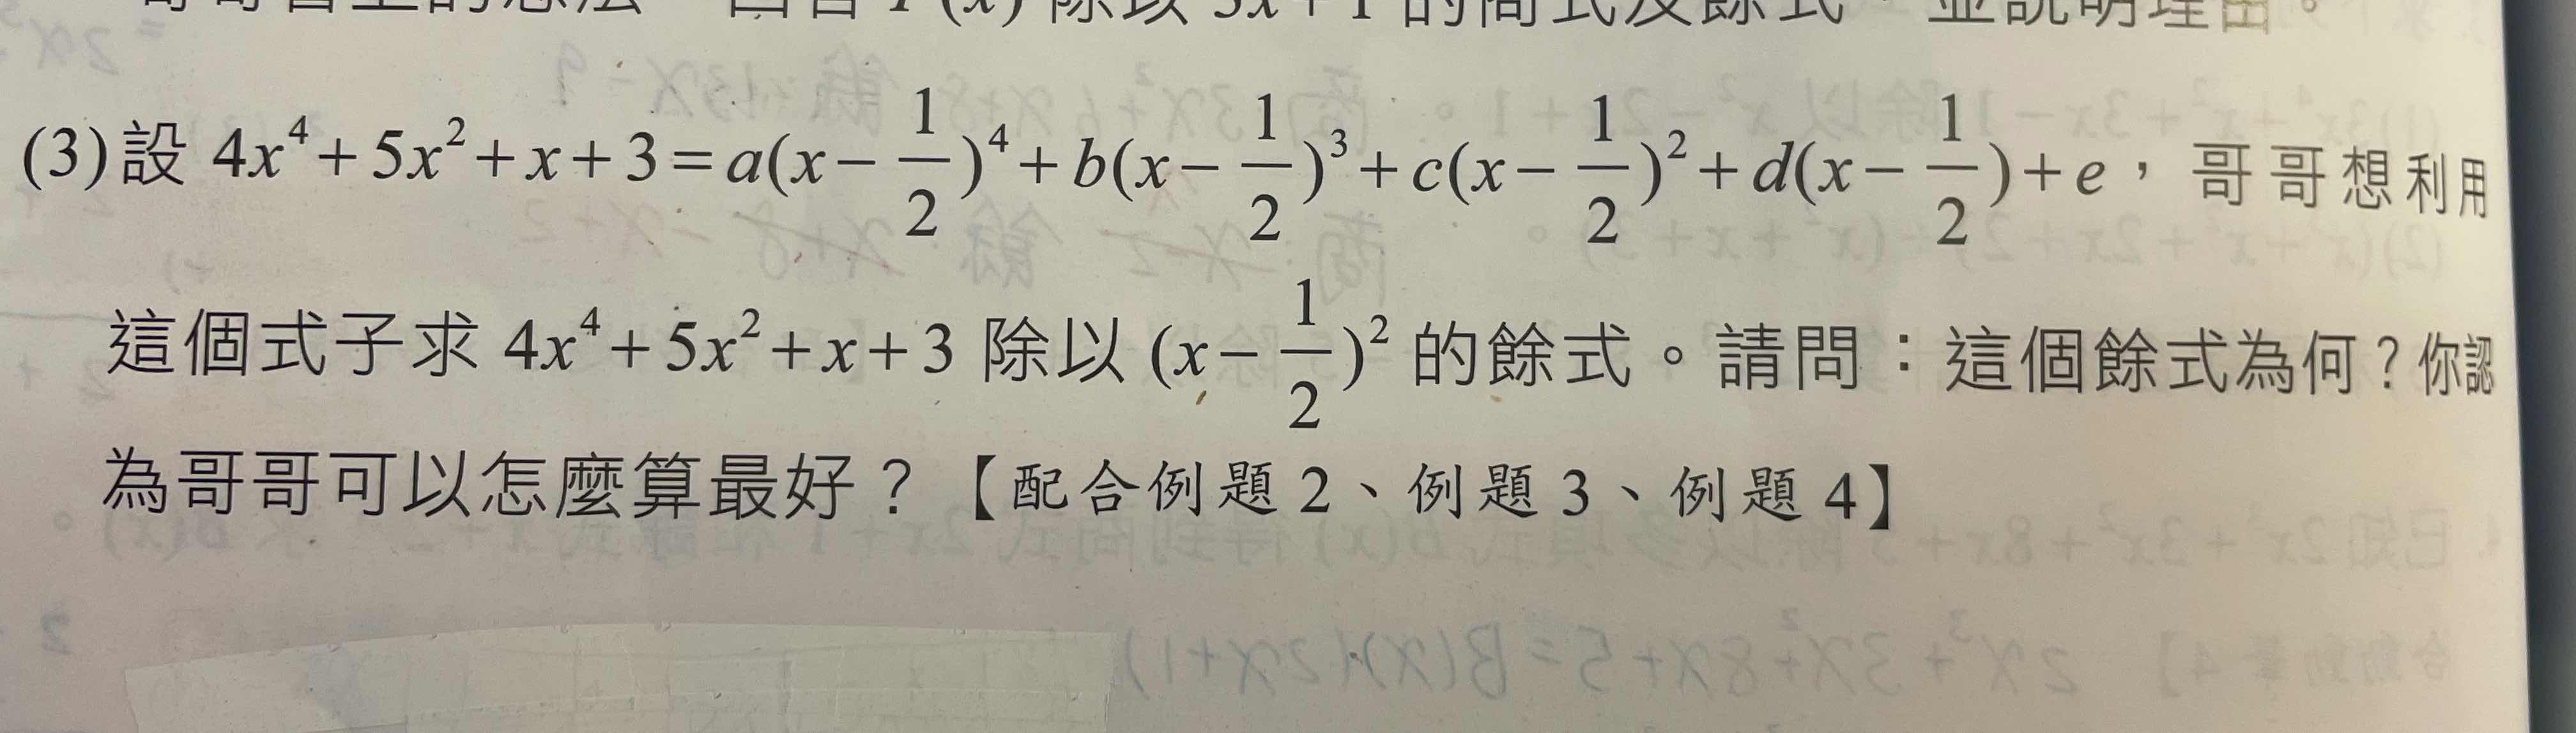 (x) 除以 3x+1 的商式及餘式,並說明理由。
(3) 設 4x⁴+5x²+x+3=a(x-1/2)⁴+b(x-1/2)³+c(x-1/2)²+d(x-1/2)+e,哥哥想利用
這個式子求 4x⁴+5x²+x+3 除以 (x-1/2)² 的餘式。請問:這個餘式為何?你認
為哥哥可以怎麼算最好?【配合例題 2、例題 3、例題 4】